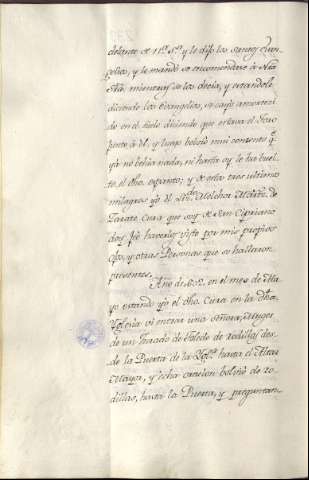 delante de N.ª S.ª y le dijo los santos Evan-
gelios, y le mandó se encomendase à Nra
Sra. mientras se los decia, y estandole
diciendo los Evangelios, se cayo amorteci-
do en el suelo diciendo que estava el Toro
junto à el, y luego bolvió mui contento q.e
yà no behia nada, ni hasta oy le ha buel-
to el dho. espanto; y de estos tres ultimos
milagros yo el Lic.do Melchor Alvarez de
Tarate, Cura que soy de San Cipriano
doy feè haverlos visto por mis propios
ojos, y otras Personas que se hallaron
presentes.
Año de 652. en el mes de Ma-
yo estando yo el dho. Cura en la dha
Yglesia vi entrar una señora, Muger
de un Jurado de Toledo de rodillas des-
de la Puerta de la Ygl.ª hasta el Altar
Mayor, y hecha oracion bolvió de ro-
dillas, hasta la Puerta, y preguntan-